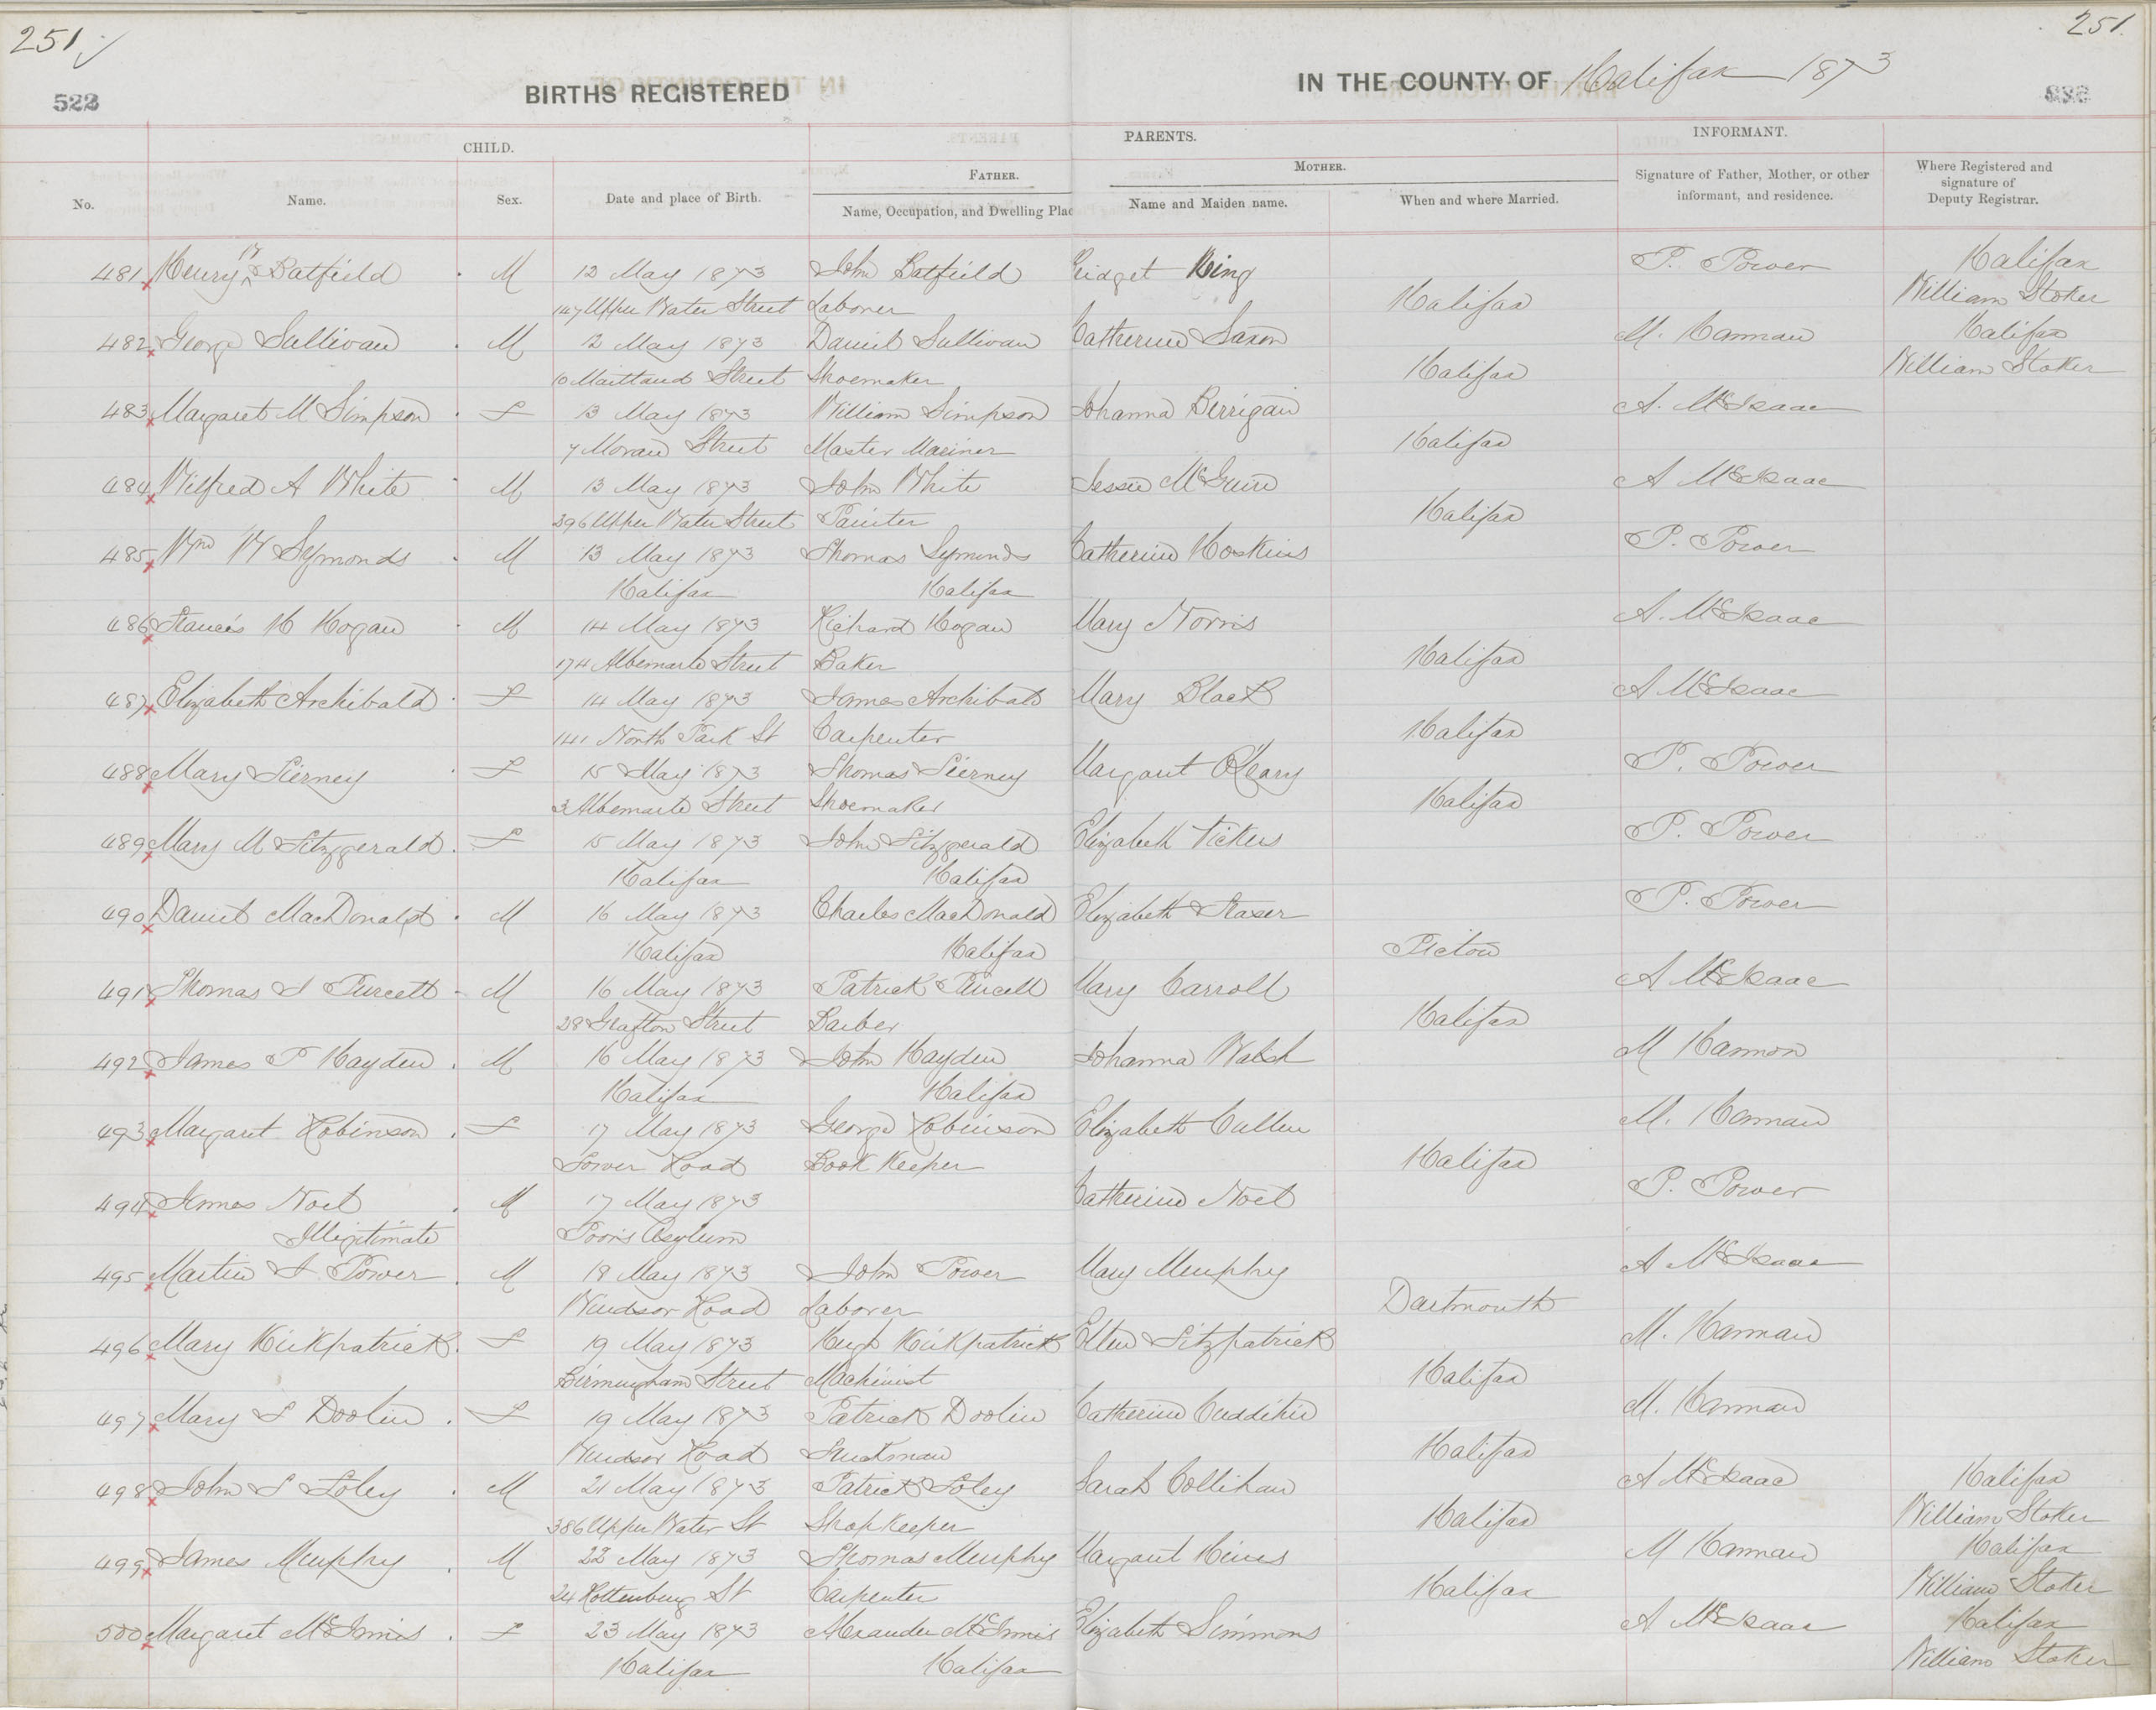 251 251.
522 BIRTHS REGISTERED IN THE COUNTY OF Halifax 1873
CHILD. PARENTS. INFORMANT.
FATHER. MOTHER.
No. Name. Sex. Date and place of Birth. Name, Occupation, and Dwelling Plac Name and Maiden name. When and where Married. Signature of Father, Mother, or other informant, and residence. Where Registered and signature of Deputy Registrar.
481 Henry W Batfield M 12 May 1873 John Batfield Bridget King P. Power Halifax
147 Upper Water Street Laborer Halifax William Stoker
482 George Sullivan M 2 May 1873 Daniel Sullivan Catherine Saxon M. Hannan Halifax
10 Maitland Street Shoemaker Halifax William Stoker
483 Margaret M Simpson F 13 May 1873 William Simpson Johanna Berrigan A. McIsaac
7 Moran Street Master Mariner Halifax
484 Wilfred A White M 13 May 1873 John White Jessie McGuire A McIsaac
296 Upper Water Street Painter Halifax
485 Wm W Symonds M 13 May 1873 Thomas Symonds Catherine Hoskins P. Power
Halifax Halifax
486 Francis H Hogan M 14 May 1873 Richard Hogan Mary Norris A. McIsaac
174 Albemarle Street Baker Halifax
487 Elizabeth Archibald F 14 May 1873 James Archibald Mary Black A McIsaac
141 North Park St Carpenter Halifax
488 Mary Tierney F 15 May 1873 Thomas Tierney Margaret O'Leary P. Power
3 Albemarle Street Shoemaker Halifax
489 Mary M Fitzgerald F 15 May 1873 John Fitzgerald Elizabeth Vickers P. Power
Halifax Halifax
490 Daniel MacDonald M 16 May 1873 Charles MacDonald Elizabeth Fraser P. Power
Halifax Halifax Pictou
491 Thomas J Purcell M 16 May 1873 Patrick Purcell Mary Carroll A McIsaac
28 Grafton Street Barber Halifax
492 James P Hayden M 16 May 1873 John Hayden Johanna Walsh M Hannon
Halifax Halifax
493 Margaret Robinson F 17 May 1873 George Robinson Elizabeth Cullen M. Hannan
Tower Road Book Keeper Halifax
494 James Noel M 17 May 1873 Catherine Noel P. Power
Illigitimate Poors Asylum
495 Martin J Power M 18 May 1873 John Power Mary Murphy A McIsaac
Windsor Road Laborer Dartmouth
496 Mary Kirkpatrick F 19 May 1873 Hugh Kirkpatrick Ellen Fitzpatrick M. Hannan
Birmingham Street Machinist Halifax
497 Mary Doolin F 19 May 1873 Patrick Doolin Catherine Cuddihie M. Hannan
Windsor Road Truckman Halifax
498 John Foley M 21 May 1873 Patrick Foley Sarah Collihan A McIsaac Halifax
386 Upper Water St Shop Keeper Halifax William Stoker
499 James Murphy M 22 May 1873 Thomas Murphy Margaret Hines M Hannan Halifax
24 Rottenburg St Carpenter Halifax William Stoker
500 Margaret McInnis F 23 May 1873 Alexander McInnis Elizabeth Simmons A McIsaac Halifax
Halifax Halifax William Stoker